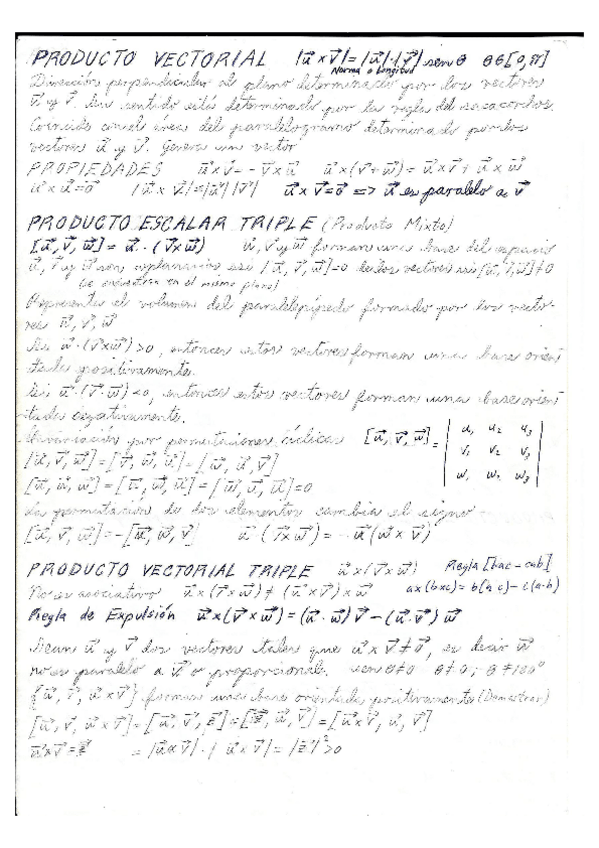 PRODUCTO VECTORIAL |u⃗ x v⃗| = |u⃗|·|v⃗| sen θ θ∈[0,π]
Norma o Longitud
Dirección perpendicular al plano determinado por los vectores
u⃗ y v⃗. Su sentido está determinado por la regla del sacacorchos.
Coincide con el área del paralelogramo determinado por los
vectores u⃗ y v⃗. Genera un vector
PROPIEDADES u⃗ x v⃗ = - v⃗ x u⃗ u⃗ x (v⃗ + w⃗) = u⃗ x v⃗ + u⃗ x w⃗
u⃗ x u⃗ = 0⃗ |u⃗ x v⃗| = |u⃗| |v⃗| u⃗ x v⃗ = 0⃗ => u⃗ es paralelo a v⃗
PRODUCTO ESCALAR TRIPLE (Producto Mixto)
[u⃗, v⃗, w⃗] = u⃗ · (v⃗ x w⃗) u⃗, v⃗ y w⃗ forman una base del espacio
u⃗, v⃗ y w⃗ son coplanarios si [u⃗, v⃗, w⃗] = 0 los vectores si [u⃗, v⃗, w⃗] ≠ 0
(se encuentran en el mismo plano)
Representa el volumen del paralelepípedo formado por los vecto-
res u⃗, v⃗, w⃗
Si u⃗ · (v⃗ x w⃗) > 0, entonces estos vectores forman una base orien-
tada positivamente.
Si u⃗ · (v⃗ · w⃗) < 0, entonces estos vectores forman una base orien-
tada negativamente.
Invariación por permutaciones cíclicas [u⃗, v⃗, w⃗] = | u₁ u₂ u₃
v₁ v₂ v₃
w₁ w₂ w₃ |
[u⃗, v⃗, w⃗] = [v⃗, w⃗, u⃗] = [w⃗, u⃗, v⃗]
= 0
La permutación de dos elementos cambia el signo
[u⃗, v⃗, w⃗] = -[u⃗, w⃗, v⃗] u⃗ (v⃗ x w⃗) = - u⃗ (w⃗ x v⃗)
PRODUCTO VECTORIAL TRIPLE u⃗ x (v⃗ x w⃗) Regla [bac - cab]
No es asociativo u⃗ x (v⃗ x w⃗) ≠ (u⃗ x v⃗) x w⃗ a x (b x c) = b(a·c) - c(a·b)
Regla de Expulsión u⃗ x (v⃗ x w⃗) = (u⃗ · w⃗) v⃗ - (u⃗ · v⃗) w⃗
Sean u⃗ y v⃗ dos vectores tales que u⃗ x v⃗ ≠ 0⃗, es decir u⃗
no es paralelo a v⃗ o proporcional. sen θ ≠ 0 θ ≠ 0; θ ≠ 180°
{u⃗, v⃗, u⃗ x v⃗} forman una base orientada positivamente (Demostrar)
[u⃗, v⃗, u⃗ x v⃗] = [u⃗, v⃗, z⃗] = [z⃗, u⃗, v⃗] = [u⃗ x v⃗, u⃗, v⃗]
u⃗ x v⃗ = z⃗ = |u⃗ x v⃗| · | u⃗ x v⃗| = |z⃗|² > 0